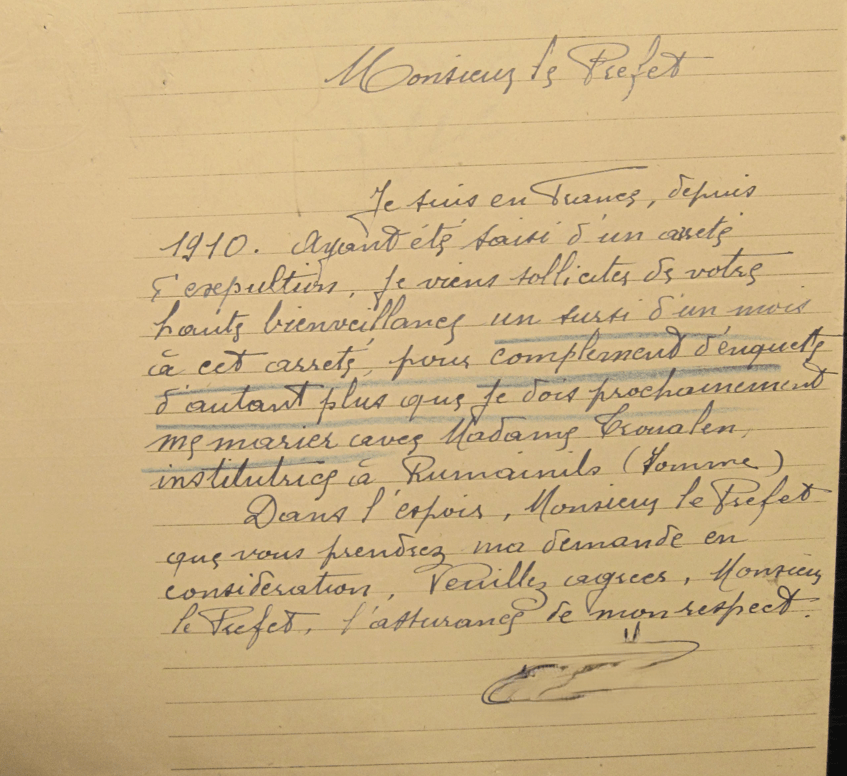 Monsieur le Prefet
Je suis en France, depuis
1910. Ayant été saisi d'un arreté
d'expultion, je viens solliciter de votre
haute bienveillance un sursi d'un mois
à cet arreté, pour complement d'enquete
d'autant plus que je dois prochainement
me marier avec Madame
institutrice à Rumainils (Somme)
Dans l'espoir, Monsieur le Prefet
que vous prendrez ma demande en
considération, Veuillez agreer, Monsieur
le Prefet, l'assurance de mon respect.